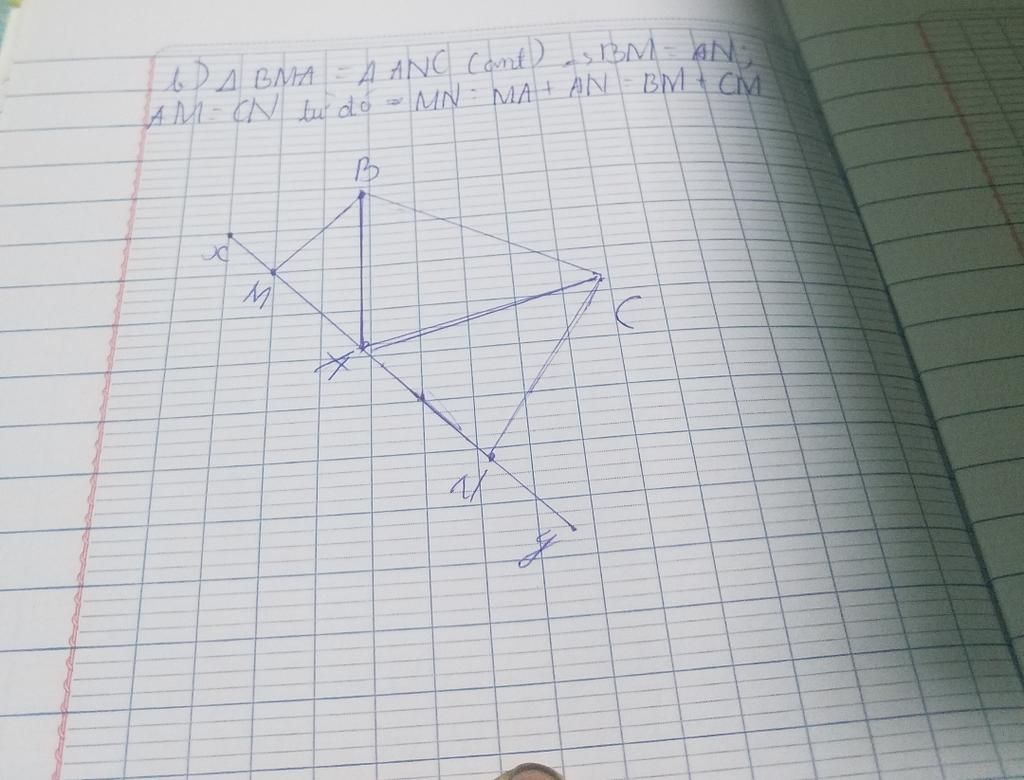 b) Δ BMA = Δ ANC (cmt) → BM = AN;
AM = CN từ đó = MN = MA + AN = BM + CM
B
x
M
C
A
N
y